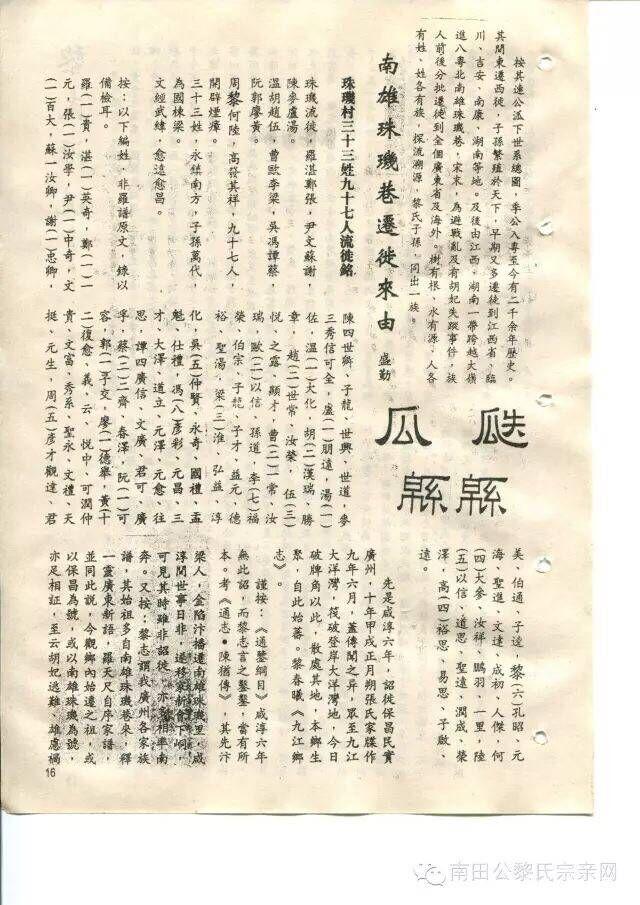 按其連公派下世系總圖，季公入粵至今有二千余年歷史。
其間東遷西徙，子孫繁殖於天下，早期又多遷徙到江西省、臨
川、吉安、南康、湖南等地。及後由江西，湖南一帶跨越大嶺
進入粵北南雄珠璣巷，宋末，為避戰亂及有胡妃失蹤事件，族
人前後分批遷徙到全個廣東省及海外。樹有根，水有源，人各
有姓、姓各有族，探流溯源，黎氏子孫，同出一族。
南雄珠璣巷遷徙來由
盛勤
珠璣村三十三姓九十七人流徙銘
珠璣流徙，羅湛鄭張，尹文蘇謝，
陳麥盧湯。
溫胡趙伍，曹歐李梁，吳馮譚蔡，
阮郭廖黃。
周黎何陸，高發其祥，九十七人，
開辟煙瘴。
三十三姓，永鎮南方，子孫萬代，
為國棟梁。
文經武緯，愈遠愈昌。
按：以下編姓，非羅譜原文，錄以
備檢耳。
羅(一)貴，湛(一)英奇，鄭(一)一
元，張(一)汝學，尹(一)中奇，文
(一)百大，蘇一汝卿，謝(一)
瓜瓞
緜緜
陳四世卿、子龍、世興、世道，麥
三秀信可全，盧(一)朋遠，湯(一)
佐，溫(一)大化，胡(二)漢瑞、勝
章，趙(二)世常、汝榮，伍(三)
悅、之露、顯才，曹(二)一常、汝
瑞，歐(二)以信、孫道，李(七)福
榮、伯宗、子龍、子才、益元、德
裕、聖湯，梁(三)淮、弘益、淳
化，吳(五)仲賢、永奇、國禮、孟
魁、仕禮，馮(八)彥彩、元昌、三
才、大澤、道立、元澤、元愈、往
思，譚四廣信、文廣、君可、廣
孚，蔡(二)三齋、春澤，阮(一)可
容，郭(一)子交，廖(一)德舉，黃(十
二)復愈、義、云、悅中、可潤仲
貴、文富、秀系、聖永、文禮、天
挺、元生，周(五)彥才觀達、君
美、伯通、子達，黎(六)孔昭、元
海、聖進、文達、成初、人傑，何
(四)大參、汝祥、鵬羽、一里，陸
(五)以信、道思、聖遠、潤威、榮
澤，高(四)裕思、易思、子啟、
遠。
先是咸淳六年，詔徙保昌民實
廣州，十年甲戌正月朔張氏家牒作
九年六月，蓋傳聞之異，眾至九江
大洋灣，筏破登岸大洋灣地，今日
破牌角以此，散處其地，本鄉生
聚，自此始蕃。黎春曦《九江鄉
志》。
謹按：《通鑒綱目》咸淳六年
無此詔，而黎志言之鑿鑿，當有所
本。考《通志•陳猶傳》，其先汴
梁人，金陷汴播遷南雄珠璣里，咸
淳間世事日非，遷移家新會下，
可見其時雖非詔徙，亦相率南
奔。又按：黎志謂我廣州各家族
譜，其始祖多自南雄珠璣巷來，釋
一靈廣東新語，羅天尺自序家譜，
並同此說，今觀鄉內始遷之祖，或
以保昌為號，或以南雄珠璣為號，
亦足相証，至云胡妃逃難，雄慮禍
16
南田公黎氏宗亲网